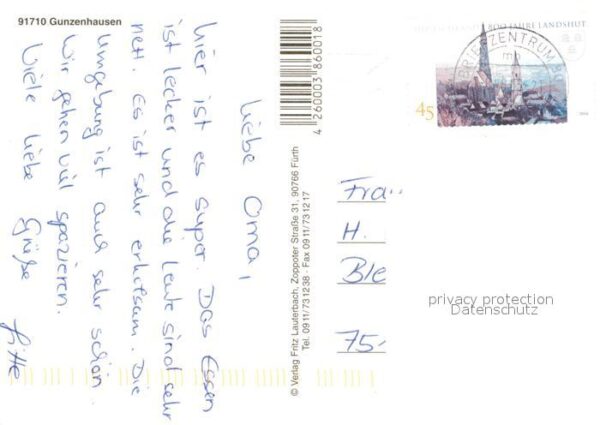 91710 Gunzenhausen
Liebe Oma,
hier ist es super. Das Essen
ist lecker und die Leute sind sehr
nett. Es ist sehr erholsam. Die
Umgebung ist auch sehr schön.
Wir gehen viel spazieren.
Viele liebe Grüße
4 260003 860018
© Verlag Fritz Lauterbach, Zoppoter Straße 31, 90766 Fürth
Tel. 0911/731238 · Fax 0911/731217
800 JAHRE LANDSHUT
BRIEFZENTRUM
45
Frau
H.
Ble
75-
privacy protection
Datenschutz